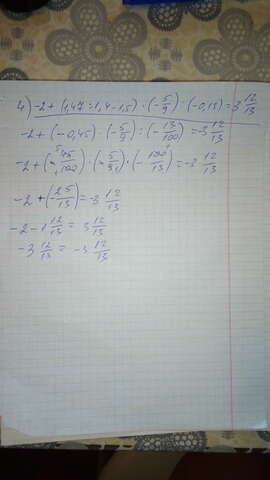 4) -2 + (1,47 : 1,4 - 1,5) · (-5/9) : (-0,13) = 3 12/13
-2 + (-0,45) · (-5/9) : (-13/100) = -3 12/13
-2 + (-45/100) · (-5/9) · (-100/13) = -3 12/13
-2 + (-25/13) = -3 12/13
-2 - 1 12/13 = 3 12/13
-3 12/13 = -3 12/13